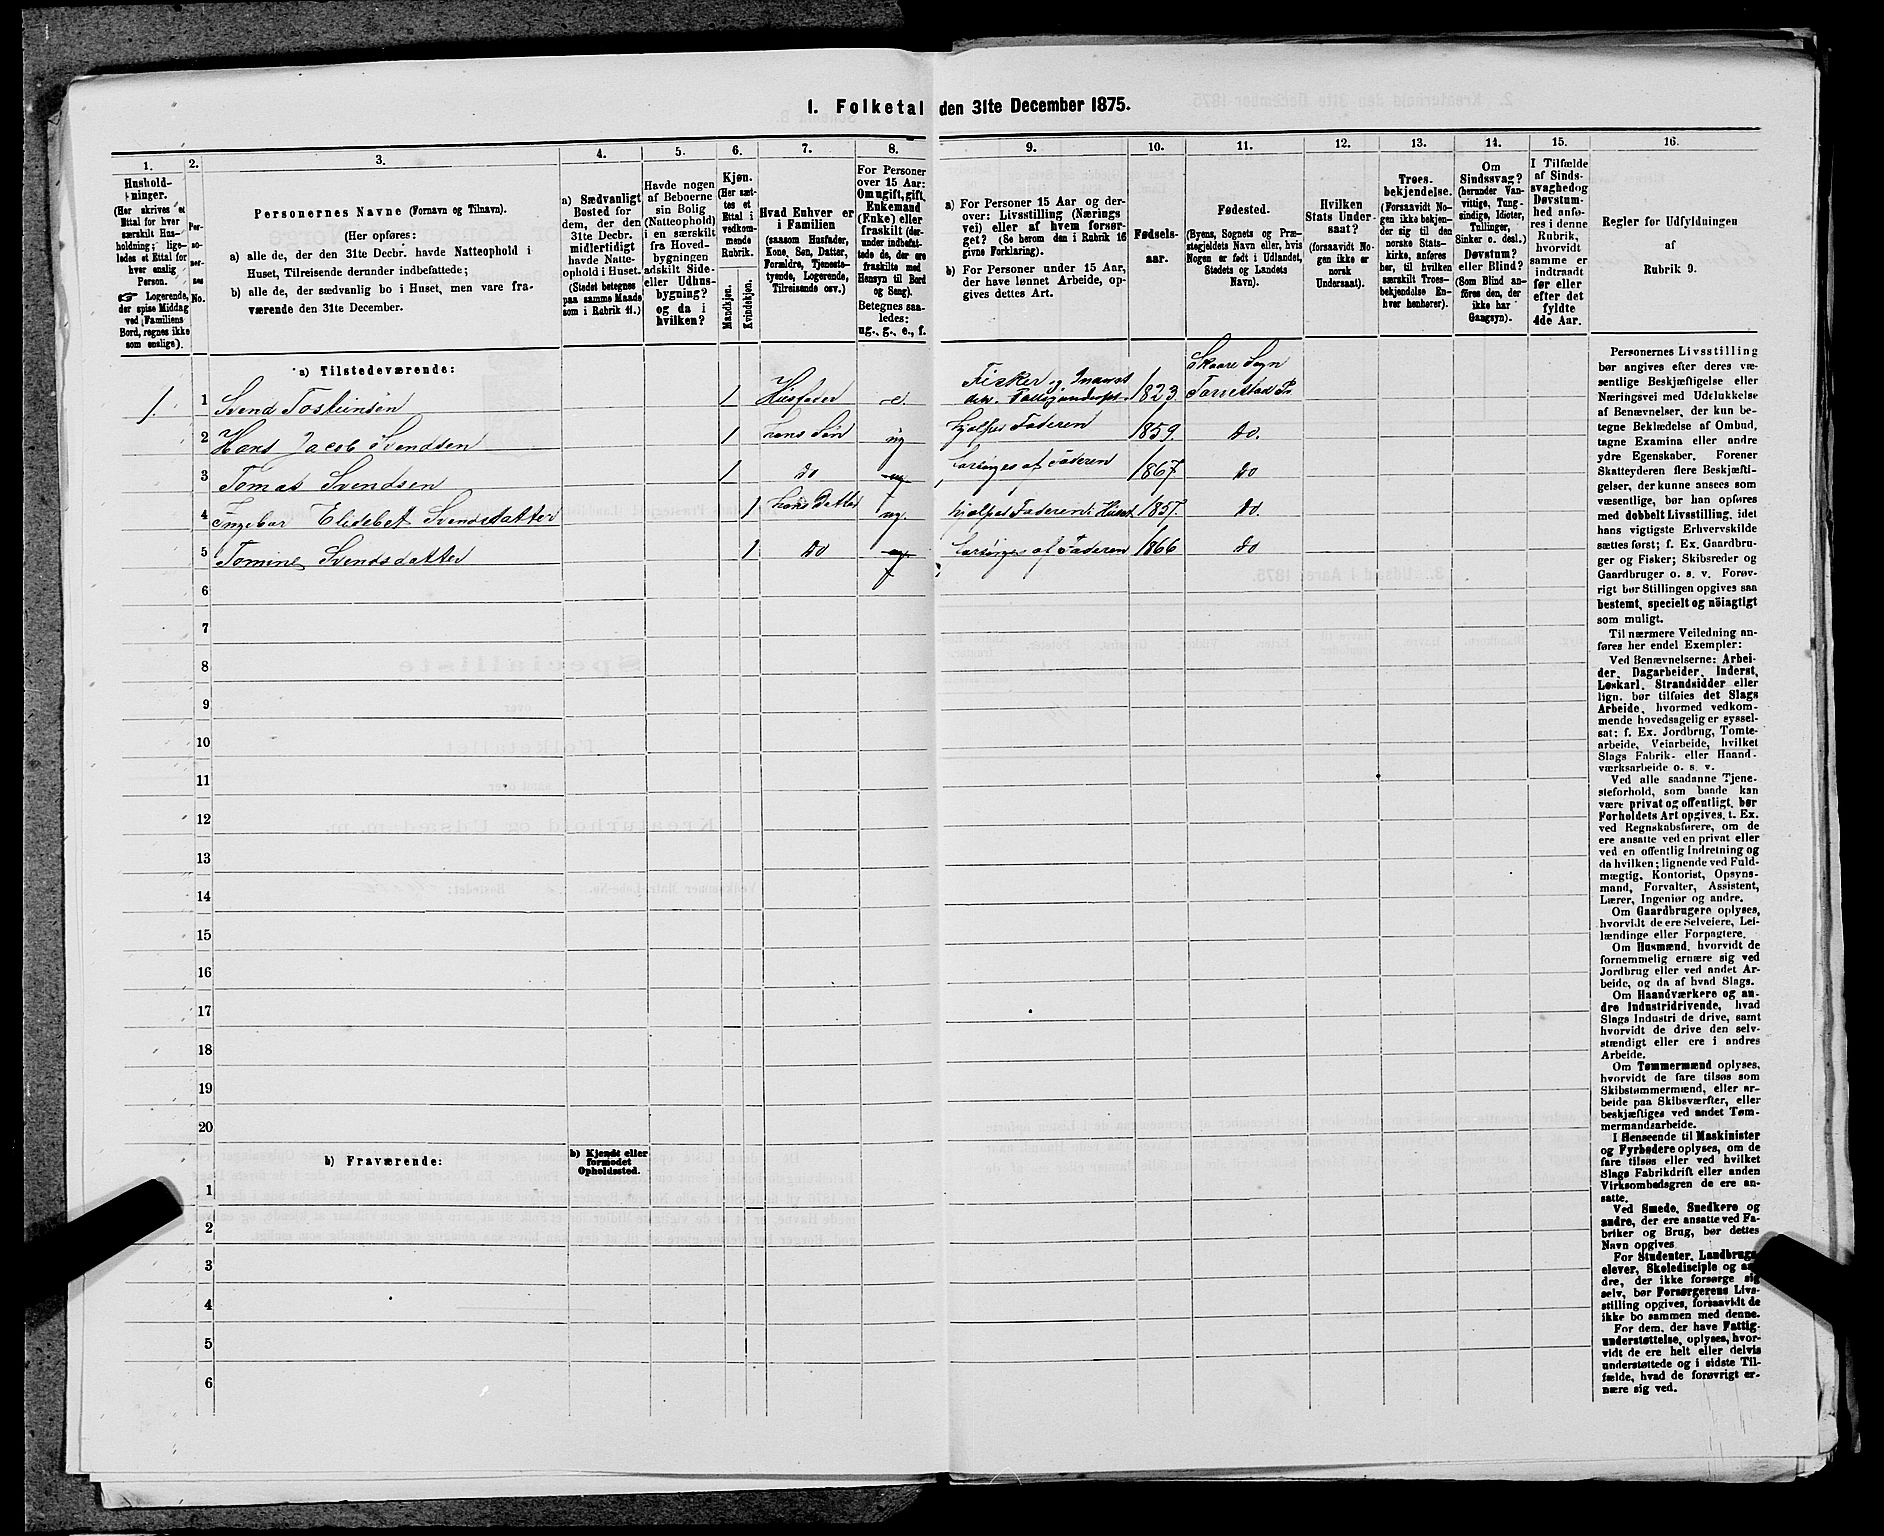 1. Folketal den 31te December 1875.
1. 2. 3. 4. 5. 6. 7. 8. 9. 10. 11. 12. 13. 14. 15. 16.
Hushold-
ninger.
(Her skrives et
Ettal for hver
særskilt Hus-
holdning; lige-
ledes et Ettal for
hver enslig
Person.
Logerende,
der spise Middag
ved Familiens
Bord, regnes ikke
som enslige).
Per-
so-
ner-
nes
No.
Personernes Navne (Fornavn og Tilnavn).
(Her opføres:
a) alle de, der den 31te Decbr. havde Natteophold i
Huset, Tilreisende derunder indbefattede;
b) alle de, der sædvanlig bo i Huset, men vare fra-
værende den 31te December.
a) Sædvanligt
Bosted for
dem, der den
31te Decbr.
midlertidigt
havde Natte-
ophold i Huset.
(Stedet betegnes
paa samme Maade
som i Rubrik 11.)
Havde nogen
af Beboerne
sin Bolig
(Natteophold)
i en særskilt
fra Hoved-
bygningen
adskilt Side-
eller Udhus-
bygning?
og da i
hvilken?
Kjøn.
(Her sæt-
tes et
Ettal i
vedkom-
mende
Rubrik.
Mandkjøn.
Kvindekjøn.
Hvad Enhver er
i Familien
(saasom Husfader,
Kone, Søn, Datter,
Forældre, Tjeneste-
tyende, Logerende,
Tilreisende osv.)
For Personer
over 15 Aar:
Om ugift, gift,
Enkemand
(Enke) eller
fraskilt (der-
under indbefat-
tede de, der ere
fraskilte med
Hensyn til Bord
og Seng).
Betegnes saa-
ledes:
ug., g., e., f.
a) For Personer 15 Aar og der-
over: Livsstilling (Nærings
vei) eller af hvem forsør-
get? (Se herom den i Rubrik 16
givne Forklaring).
b) For Personer under 15 Aar,
der have lønnet Arbeide, op-
gives dettes Art.
Fødsels-
aar.
Fødested.
(Byens, Sognets og Præ-
stegjeldets Navn eller, hvis
Nogen er født i Udlandet,
Stedets og Landets
Navn).
Hvilken
Stats Under-
saat?
(forsaavidt No-
gen ikke er
norsk
Undersaat).
Troes-
bekjendelse.
(Forsaavidt No-
gen ikke bekjen-
der sig til den
norske Stats-
kirke, anføres
her, til hvilken
særskilt Troes-
bekjendelse En-
hver henhører).
Om
Sindssvag?
(herunder Van-
vittige, Tung-
sindige, Idioter,
Sinker o. desl.)
Døvstum?
eller Blind?
(Som Blind an-
føres den, der
ikke har
Gangsyn).
I Tilfælde
af Sinds-
svaghed og
Døvstum-
hed anfø-
res i denne
Rubrik,
hvorvidt
samme er
indtraadt
før eller
efter det
fyldte
4de Aar.
Regler for Udfyldningen
af
Rubrik 9.
a) Tilstedeværende:
Skaare Sogn
1. 1 Svend Tosteinsen 1 Husfader e. Fisker og 1823 Torrestad Pr.
2 Hans Jacob Svendsen 1 hans Søn ug hjælper Faderen 1859. do.
3 Tomas Svendsen 1 do ug forsørges af Faderen 1867 do
4 Ingebor Elidebet Svendsdatter 1 hans Datter ug. hjælper Faderen i Huset 1857. do.
5 Tomine Svendsdatter 1 do ug forsørges af Faderen 1866 do
6
7
8
9
10
11
12
13
14
15
16
17
18
19
20
b) Fraværende:
b) Kjendt eller
formodet
Opholdssted.
1
2
3
4
5
6
Personernes Livsstilling
bør angives efter deres væ-
sentlige Beskjæftigelse eller
Næringsvei med Udelukkelse
af Benævnelser, der kun be-
tegne Beklædelse af Ombud,
tagne Examina eller andre
ydre Egenskaber. Forener
Skatteyderen flere Beskjæfti-
gelser, der kunne ansees som
væsentlige, bør han opføres
med dobbelt Livsstilling, idet
hans vigtigste Erhvervskilde
sættes først; f. Ex. Gaardbru-
ger og Fisker; Skibsreder og
Gaardbruger o. s. v. Forøv-
rigt bør Stillingen opgives saa
bestemt, specielt og nöiagtigt
som muligt.
Til nærmere Veiledning an-
føres her endel Exempler:
Ved Benævnelserne: Arbei-
der, Dagarbeider, Inderst,
Løskarl, Strandsidder eller
lign. bør tilføies det Slags
Arbeide, hvormed vedkom-
mende hovedsagelig er syssel-
sat; f. Ex. Jordbrug, Tomte-
arbeide, Veiarbeide, hvilket
Slags Fabrik- eller Haand-
værksarbeide o. s. v.
Ved alle saadanne Tjene-
steforhold, som baade kan
være privat og offentligt, bør
Forholdets Art opgives, t. Ex.
ved Regnskabsførere, om de
ere ansatte ved en privat eller
ved en offentlig Indretning og
da hvilken; lignende ved Fuld-
mægtig, Kontorist, Opsyns-
mand, Forvalter, Assistent,
Lærer, Ingeniør og andre.
Om Gaardbrugere oplyses,
hvorvidt de ere Selveiere, Lei-
lændinge eller Forpagtere.
Om Husmænd, hvorvidt de
fornemmelig ernære sig ved
Jordbrug eller ved andet Ar-
beide, og da af hvad Slags.
Om Haandværkere og an-
dre Industridrivende, hvad
Slags Industri de drive, samt
hvorvidt de drive den selv-
stændigt eller ere i andres
Arbeide.
Om Tømmermænd oplyses,
hvorvidt de fare tilsøs som
Skibstømmermænd, eller ar-
beide paa Skibsværfter, eller
beskjæftiges ved andet Tøm-
mermandsarbeide.
I Henseende til Maskinister
og Fyrbødere oplyses, om de
fare tilsøs eller ved hvilket
Slags Fabrikdrift eller anden
Virksombedsgren de ere an-
satte.
Ved Smede, Snedkere og
andre, der ere ansatte ved Fa-
briker og Brug, bør dettes
Navn opgives
For Studenter, Landbrugs-
elever, Skoledisciple og an-
dre, der ikke forsørge sig
selv, bør Forsørgerens Livs-
stilling opgives, forsaavidt de
ikke bo sammen med denne.
For dem, der have Fattig-
understøttelse, oplyses, hvor-
vidt de ere helt eller delvis
understøttede og i sidste Til-
fælde, hvad de forøvrigt er-
nære sig ved.